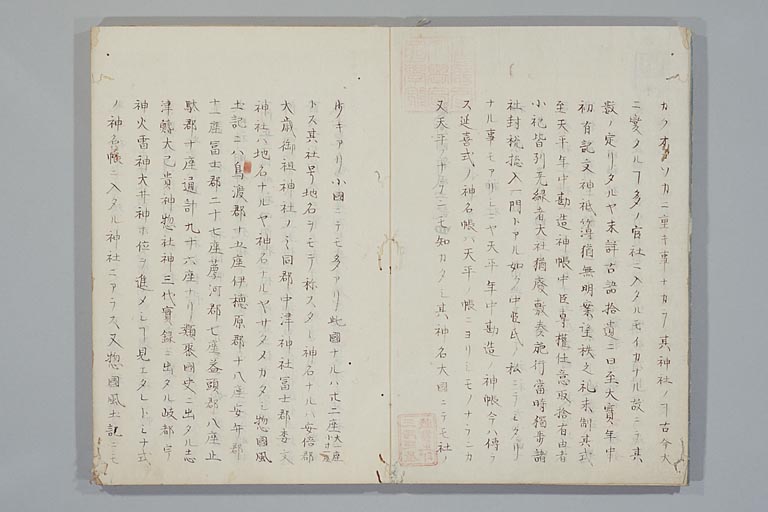 ニ變タルヿ多ノ官社ニ入タルモイカナル故ニ
數ノ定リタルヤ未詳古語拾遺ニ曰至大寶年中
初有記文神祇簿猶無明案望秩之礼未制其式
至天平年中勘造神帳中臣專權任意取捨有由者
小祀皆列无緣者大社猶廢敷奏施行當時獨步諸
社封税総入一門トアル如ク中臣氏ノ私ニテ
ナル事モアリシニヤ天平年中勘造ノ神帳今ハ傳ラ
ス延喜式ノ神名帳ハ天平ノ帳ニヨリシモノナランカ
知カタシ其神名大國ニテモ社ノ
少キアリ小國ニテモ多アリ此國ナルハ廿二座大一座小廿一座
トス其社号地名ラモテ称スタシ神名ナルハ安倍郡
大歳御祖神社ノミ同郡中津神社冨士郡
神社ハ地名ナルヤ神名ナルヤサタメカタシ惣國風
土記ニハ鳥渡郡十五座伊穂原郡十八座安午郡
十一座冨士郡二十七座蘆河郡七座益頭郡八座止
駄郡十座通計九十六座ナリ類聚國史ニ出タル志
津轉大己貴神惣社神三代實録ニ出タル岐都宇
神火雷神大井神ホ位ヲ進メシヿ見エタレトミナ式
ノ神名帳ニ入タル神社ニアラス又惣國風土記ニモ